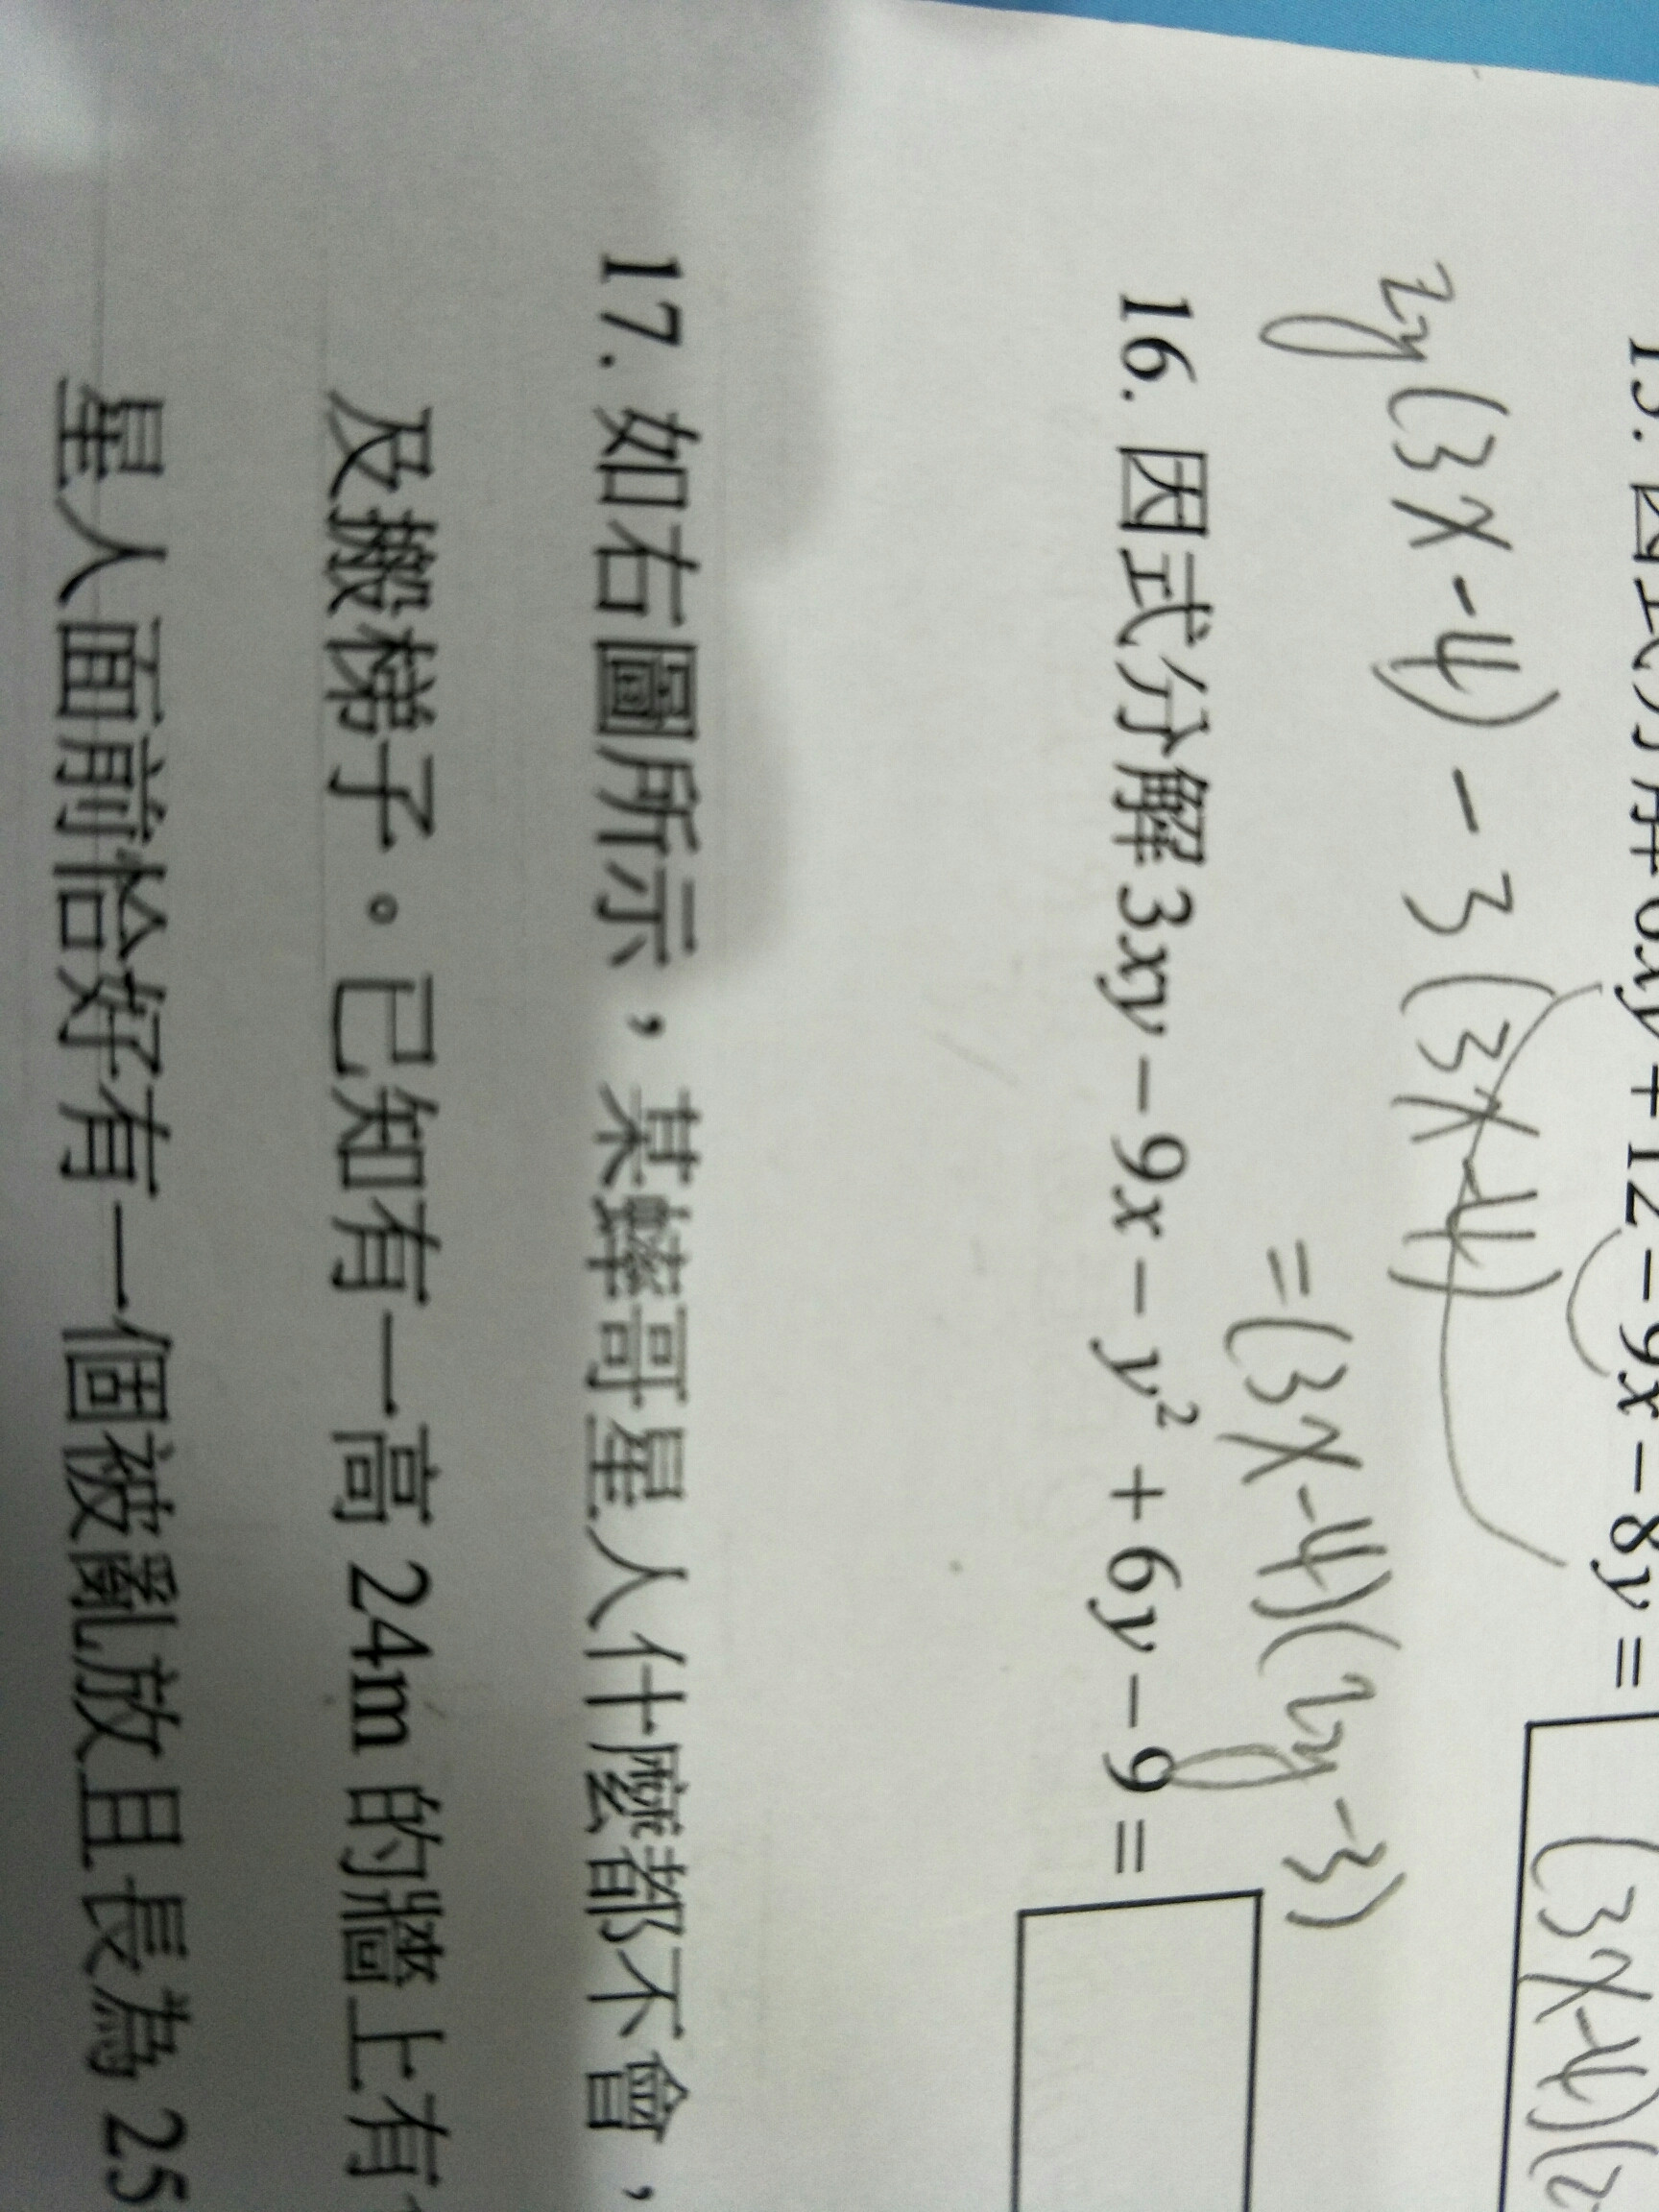 15. 因式分解 6xy + 12 - 9x - 8y = (3x-4)(2
2y(3x-4) - 3(3x-4)
=(3x-4)(2y-3)
16. 因式分解 3xy - 9x - y² + 6y - 9 =
17. 如右圖所示，某蜂哥星人什麼都不會，
及搬梯子。已知有一高 24m 的牆上有
星人面前恰好有一個被亂放且長為 25